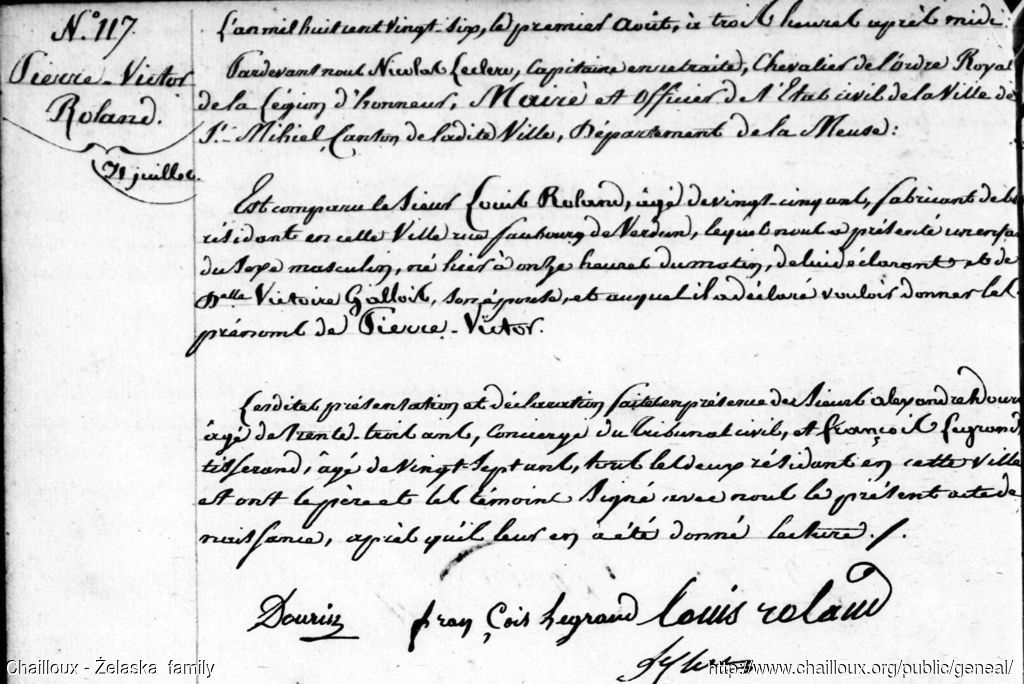 N.° 117.
Pierre-Victor
Roland.
31 juillet.
L'an mil huit cent vingt-six, le premier Août, à trois heures après midi
Pardevant nous Nicolas Leclerc, Capitaine en retraite, Chevalier de l'ordre Royal
de la Légion d'honneur, Maire et Officier de l'Etat civil de la Ville de
St. Mihiel, Canton de ladite Ville, Département de la Meuse:
Est comparu le Sieur Louis Roland, âgé de vingt-cinq ans, fabricant de
résidant en cette Ville rue faubourg de Verdun, lequel nous a présenté un enfan
du Sexe masculin, né hier à onze heures du matin, de lui déclarant et de
Delle Victoire Gallois, son épouse, et auquel il a déclaré vouloir donner les
prénoms de Pierre-Victor.
Lesdites présentation et déclaration faites en présence des Sieurs alexandre
âgé de trente-trois ans, concierge du tribunal civil, et françois Legrand,
tisserand, âgé de vingt-sept ans, tous les deux résidant en cette ville
et ont le père et les témoins signé avec nous le présent acte de
naissance, après qu'il leur en a été donné lecture. /.
françois legrand louis roland
Chailloux - Żelaska family
http://www.chailloux.org/public/geneal/